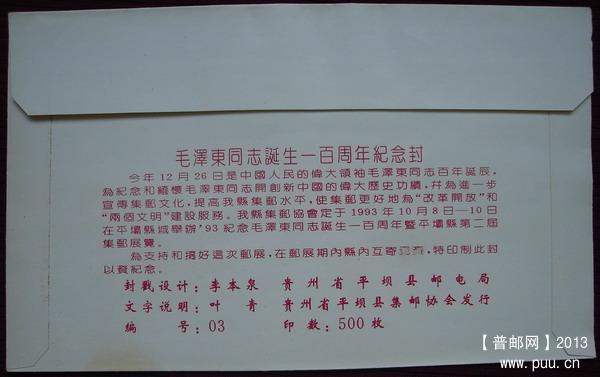 毛澤東同志誕生一百周年紀念封
今年12月26日是中國人民的偉大領袖毛澤東同志百年誕辰,
為紀念和緬懷毛澤東同志開創新中國的偉大歷史功績,并為進一步
宣傳集郵文化,提高我縣集郵水平,使集郵更好地為“改革開放”和
“兩個文明”建設服務。我縣集郵協會定于1993年10月8日—10日
在平壩縣城舉辦'93紀念毛澤東同志誕生一百周年暨平壩縣第二屆
集郵展覽。
為支持和搞好這次郵展,在郵展期內縣內互寄免資,特印制此封
以資紀念。
封戳设计:李本泉 贵州省平坝县邮电局
文字说明:叶青 贵州省平坝县集邮协会发行
编号:03 印数:500枚
【普邮网】2013
www.puu.cn